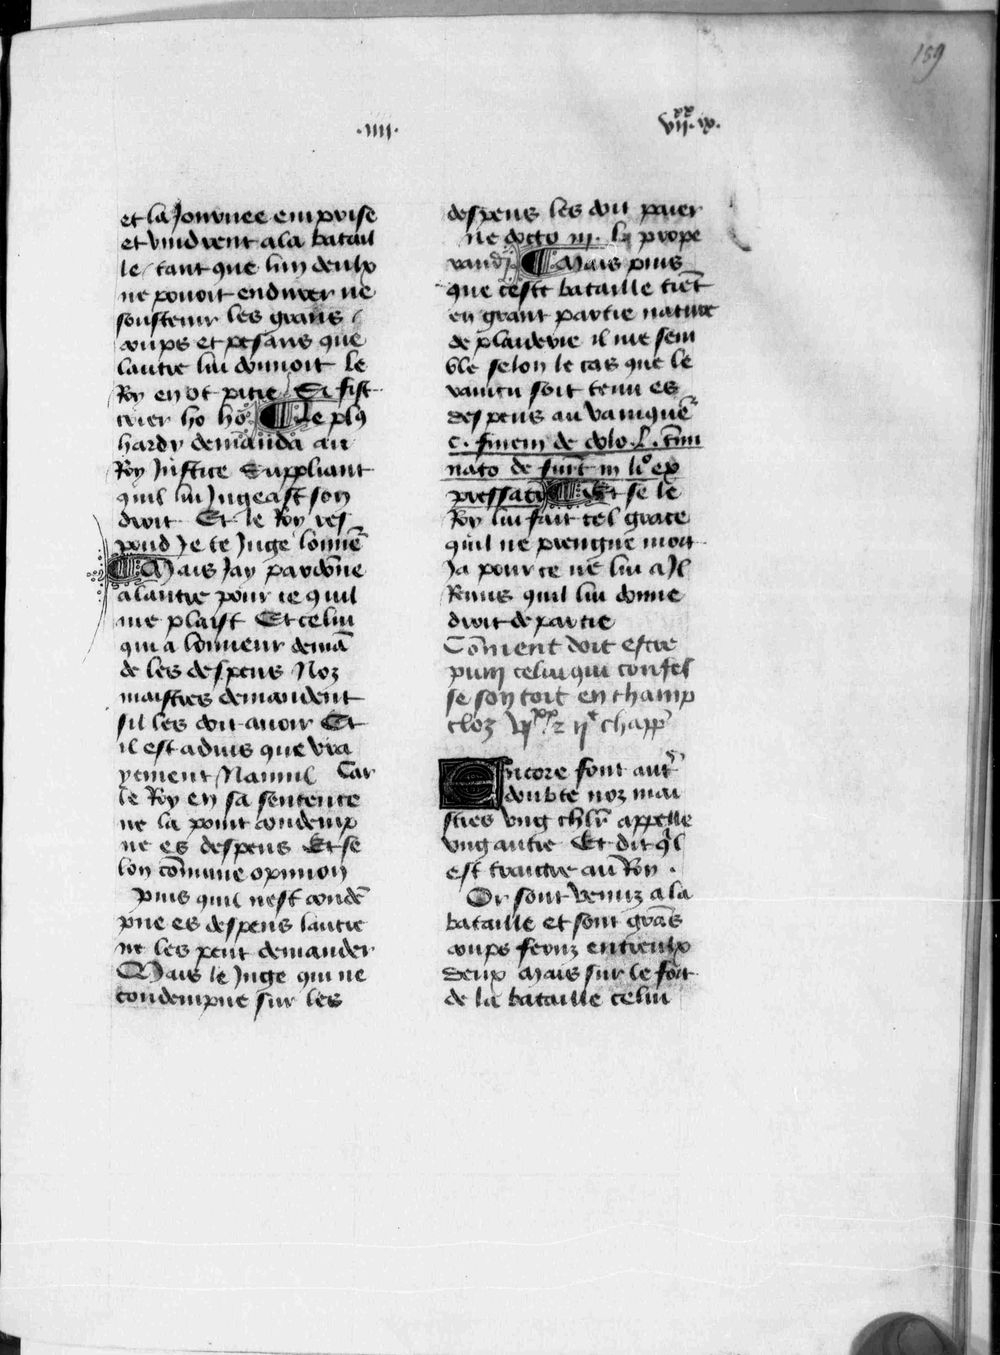 159
.iiii. vii.xx ix.
et la Journee emprise
et vindrent a la batail
le / tant que lun deulx
ne pouoit endurer ne
soustenir les grans /
coups et pesans que
lautre lui donnoit le
Roy en ot pitie / Si fist
crier ho ho ¶ Le plus
hardy demanda au
Roy Justice Suppliant
quil lui Jugeast son
droit Et le Roy res
pond Je te Juge lonnē
¶ Mais Jay pardōne
a lautre pour ce quil
me plaist Et celui
qui a lonneur demā
de les despens Noz
maistres demandent
sil les doit auoir Et
il est aduis que vra
yement Nannil Car
le Roy en sa sentence
ne la point condemp
ne es despens Et se
lon cōmune opinion
puis quil nest condē
pne es despens lautre
ne les peut demander
Mais le Juge qui ne
condempne sur les
despens les doit paier
ne octo iij. prope
randj ¶ Mais puis
que ceste bataille tiēt
en grant partie nature
de plaiderie il me sem
ble selon le cas que le
vaincu soit tenu es
despens au vainquē
c. finem de dolo. l. cōm
nato de in li° ex
pressatū ¶ Et se le
Roy lui fait tel grace
quil ne prengne mort
Ja pour ce ne lui a Jl
Remis quil lui donne
droit de partie
Cōment doit estre
puni celui qui confes
se son tort en champ
cloz chapp
Encore font autr
doubte noz mai
stres vng chlr appelle
vng autre Et dit ql
est traictre au Roy .
Or sont venuz a la
bataille et sont grās
coups feruz entreulx
deux Mais sur le fort
de la bataille celui